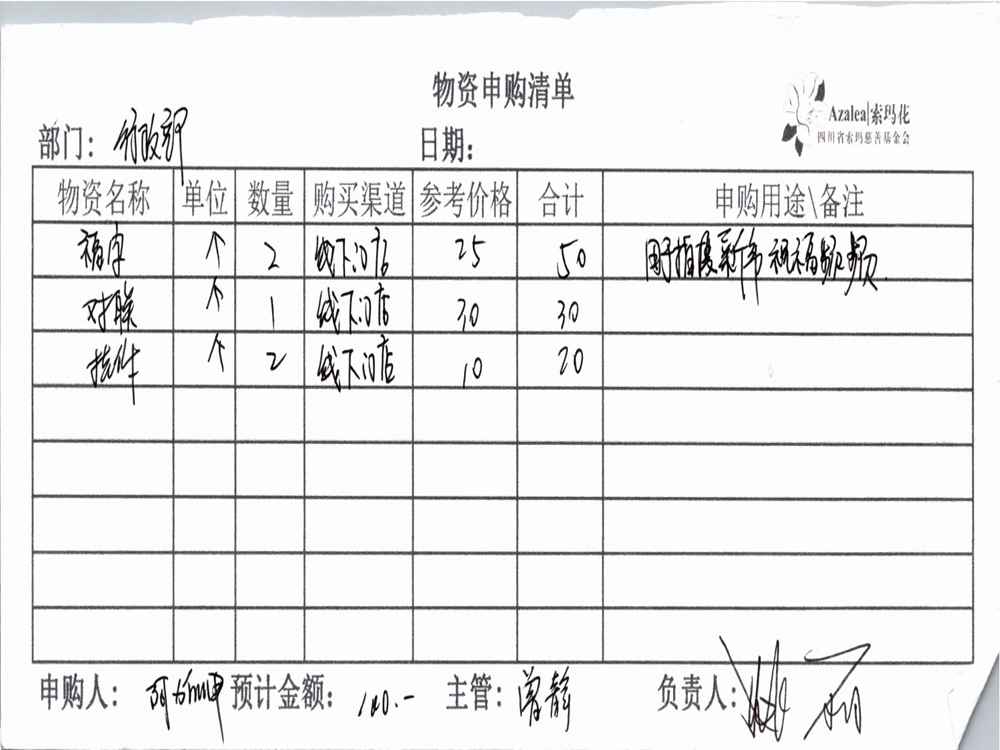 物资申购清单
Azalea|索玛花
四川省索玛慈善基金会
部门：行政部 日期：
物资名称 单位 数量 购买渠道 参考价格 合计 申购用途\备注
福字 个 2 线下门店 25 50 用于拍摄新年祝福视频.
对联 个 1 线下门店 30 30
挂件 个 2 线下门店 10 20
申购人： 预计金额：100.- 主管：曾静 负责人：